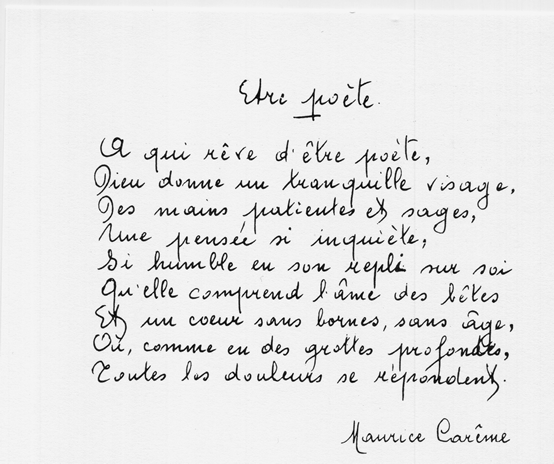 Etre poète.
A qui rêve d'être poète,
Dieu donne un tranquille visage,
Des mains patientes et sages,
Une pensée si inquiète,
Si humble en son repli sur soi
Qu'elle comprend l'âme des bêtes
Et un coeur sans bornes, sans âge,
Où, comme en des grottes profondes,
Toutes les douleurs se répondent.
Maurice Carême